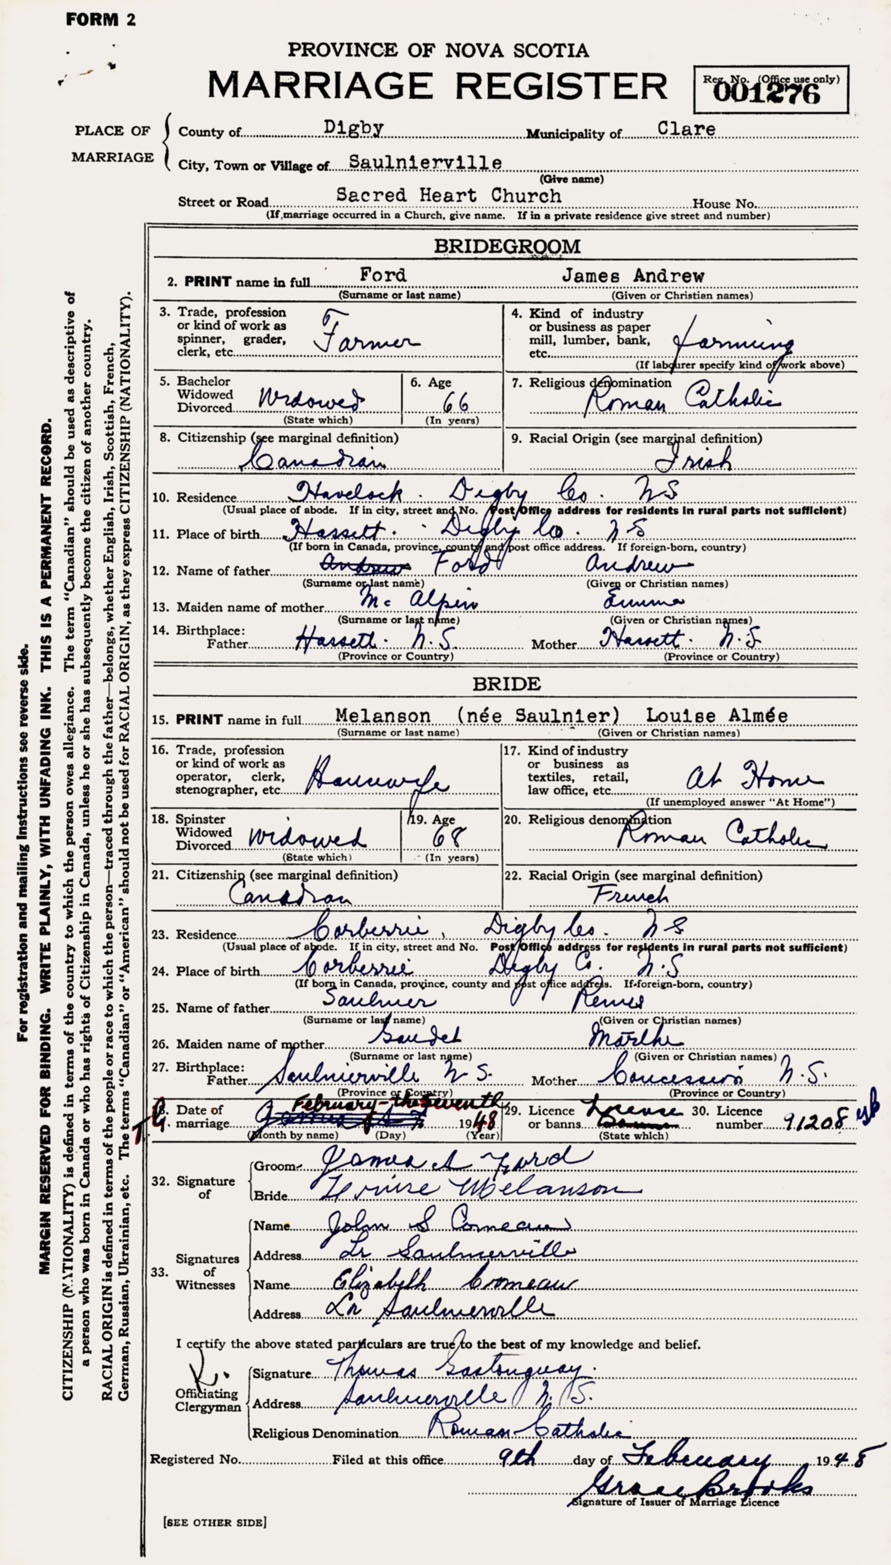 FORM 2
PROVINCE OF NOVA SCOTIA
MARRIAGE REGISTER
Reg. No. (Office use only)
001276
PLACE OF MARRIAGE
County of Digby Municipality of Clare
City, Town or Village of Saulnierville
(Give name)
Street or Road Sacred Heart Church House No.
(If marriage occurred in a Church, give name. If in a private residence give street and number)
BRIDEGROOM
2. PRINT name in full Ford James Andrew
(Surname or last name) (Given or Christian names)
3. Trade, profession or kind of work as spinner, grader, clerk, etc. Farmer
4. Kind of industry or business as paper mill, lumber, bank, etc. farming
(If labourer specify kind of work above)
5. Bachelor Widowed Divorced Widowed
(State which)
6. Age 66
(In years)
7. Religious denomination Roman Catholic
8. Citizenship (see marginal definition)
Canadian
9. Racial Origin (see marginal definition)
Irish
10. Residence Havelock. Digby Co. NS
(Usual place of abode. If in city, street and No. Post Office address for residents in rural parts not sufficient)
11. Place of birth Hassett. Digby Co. N S
(If born in Canada, province, county and post office address. If foreign-born, country)
12. Name of father Andrew Ford Andrew
(Surname or last name) (Given or Christian names)
13. Maiden name of mother Mc Alpin Emma
(Surname or last name) (Given or Christian names)
14. Birthplace:
Father Hassett. N.S. Mother Hassett. N.S.
(Province or Country) (Province or Country)
BRIDE
15. PRINT name in full Melanson (née Saulnier) Louise Almée
(Surname or last name) (Given or Christian names)
16. Trade, profession or kind of work as operator, clerk, stenographer, etc. Housewife
17. Kind of industry or business as textiles, retail, law office, etc. At Home
(If unemployed answer "At Home")
18. Spinster Widowed Divorced Widowed
(State which)
19. Age 68
(In years)
20. Religious denomination Roman Catholic
21. Citizenship (see marginal definition)
Canadian
22. Racial Origin (see marginal definition)
French
23. Residence Corberrie, Digby Co. N S
(Usual place of abode. If in city, street and No. Post Office address for residents in rural parts not sufficient)
24. Place of birth Corberrie Digby Co. N.S
(If born in Canada, province, county and post office address. If foreign-born, country)
25. Name of father Saulnier Remie
(Surname or last name) (Given or Christian names)
26. Maiden name of mother Gaudet Marthe
(Surname or last name) (Given or Christian names)
27. Birthplace:
Father Saulnierville N S. Mother Concession N.S.
(Province or Country) (Province or Country)
28. Date of marriage February - the seventh 1948
(Month by name) (Day) (Year)
29. Licence or banns License
(State which)
30. Licence number 91208
32. Signature of
Groom James A Ford
Bride Louise Melanson
33. Signatures of Witnesses
Name John S Comeau
Address Lr Saulnierville
Name Elizabeth Comeau
Address Lr Saulnierville
I certify the above stated particulars are true to the best of my knowledge and belief.
Officiating Clergyman
Signature Thomas Gastonguay.
Address Saulnierville N.S.
Religious Denomination Roman Catholic
Registered No. Filed at this office 9th day of February 1948
Grace Brooks
Signature of Issuer of Marriage Licence
[SEE OTHER SIDE]
For registration and mailing instructions see reverse side.
MARGIN RESERVED FOR BINDING. WRITE PLAINLY, WITH UNFADING INK. THIS IS A PERMANENT RECORD.
CITIZENSHIP (NATIONALITY) is defined in terms of the country to which the person owes allegiance. The term "Canadian" should be used as descriptive of
a person who was born in Canada or who has rights of Citizenship in Canada, unless he or she has subsequently become the citizen of another country.
RACIAL ORIGIN is defined in terms of the people or race to which the person—traced through the father—belongs, whether English, Irish, Scottish, French,
German, Russian, Ukrainian, etc. The terms "Canadian" or "American" should not be used for RACIAL ORIGIN, as they express CITIZENSHIP (NATIONALITY).